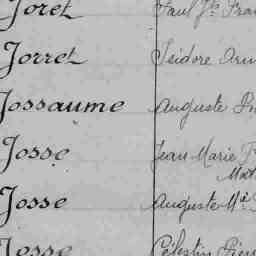 Joret Paul Jh Fran
Jorret Isidore Arm
Jossaume Auguste
Josse Jean Marie
Josse Auguste Mie
Josse Célestin Pierr